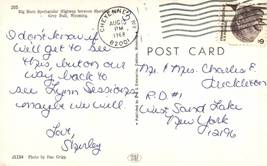 205
Big Horn Spectacular Highway between
Grey Bull, Wyoming.
CHEYENNE, WY
AUG
PM
1968
820
6¢
POST CARD
I dont know if
will get to see
this but on our
way back to
see Lynn Sessions
maybe we will
Love,
Shirley
Mr. & Mrs. Charles F.
R.D. #1
West Sand Lake
New York
12196
Photo by Dan Gripp